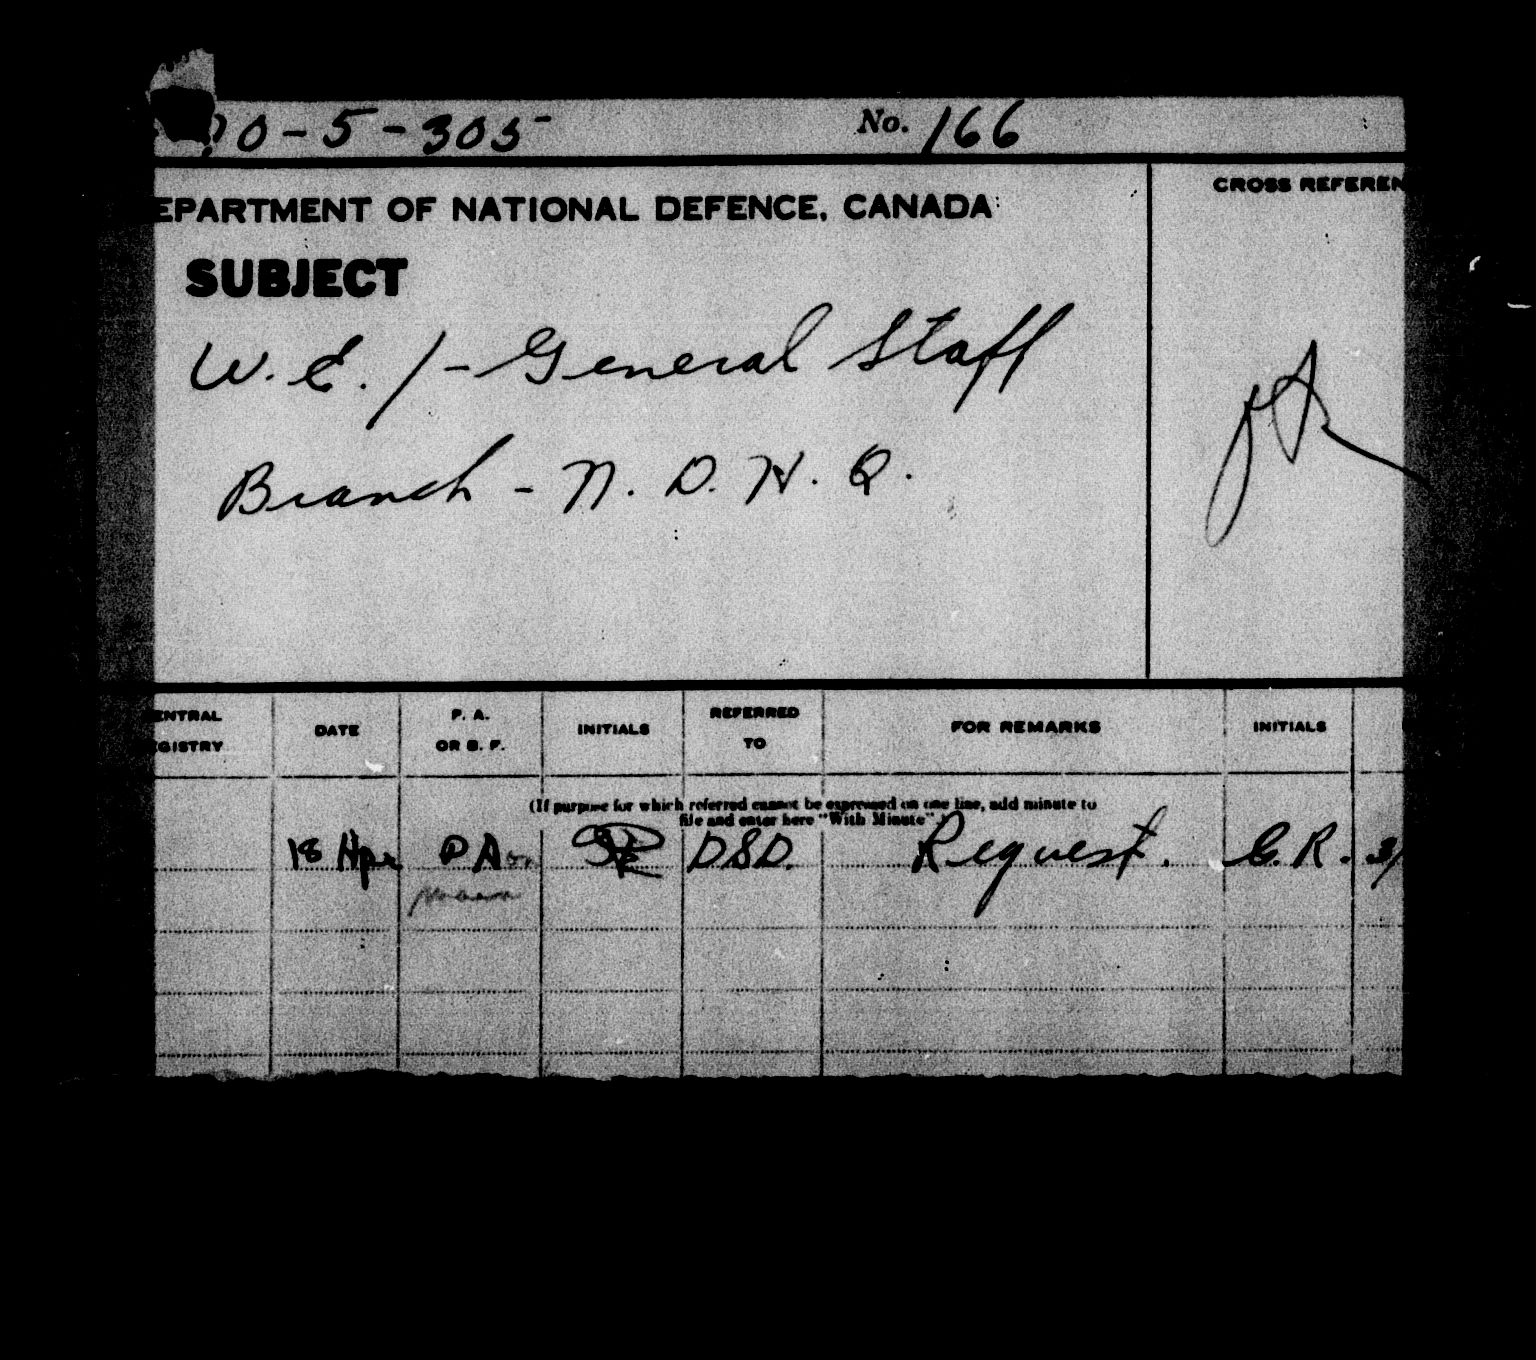 0-5-305 No. 166
EPARTMENT OF NATIONAL DEFENCE, CANADA
CROSS REFEREN
SUBJECT
W. E. /- General Staff
Branch - N. D. H. Q.
ENTRAL GISTRY
DATE
P. A. OR B. F.
INITIALS
REFERRED TO
FOR REMARKS
INITIALS
(If purpose for which referred cannot be expressed on one line, add minute to
file and enter here "With Minute".)
18 Apr P A DSD. Request. C. R.